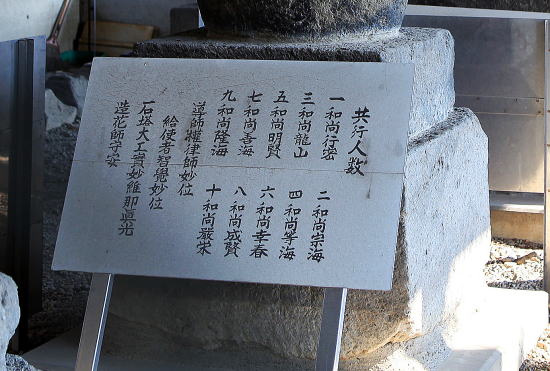 共行人数
一和尚行宏
二和尚宗海
三和尚龍山
四和尚等海
五和尚明賢
六和尚幸春
七和尚吾海
八和尚成賢
九和尚隆海
十和尚厳栄
導師権律師妙位
給使者智覺妙位
石塔大工實妙維那真光
造花師守安